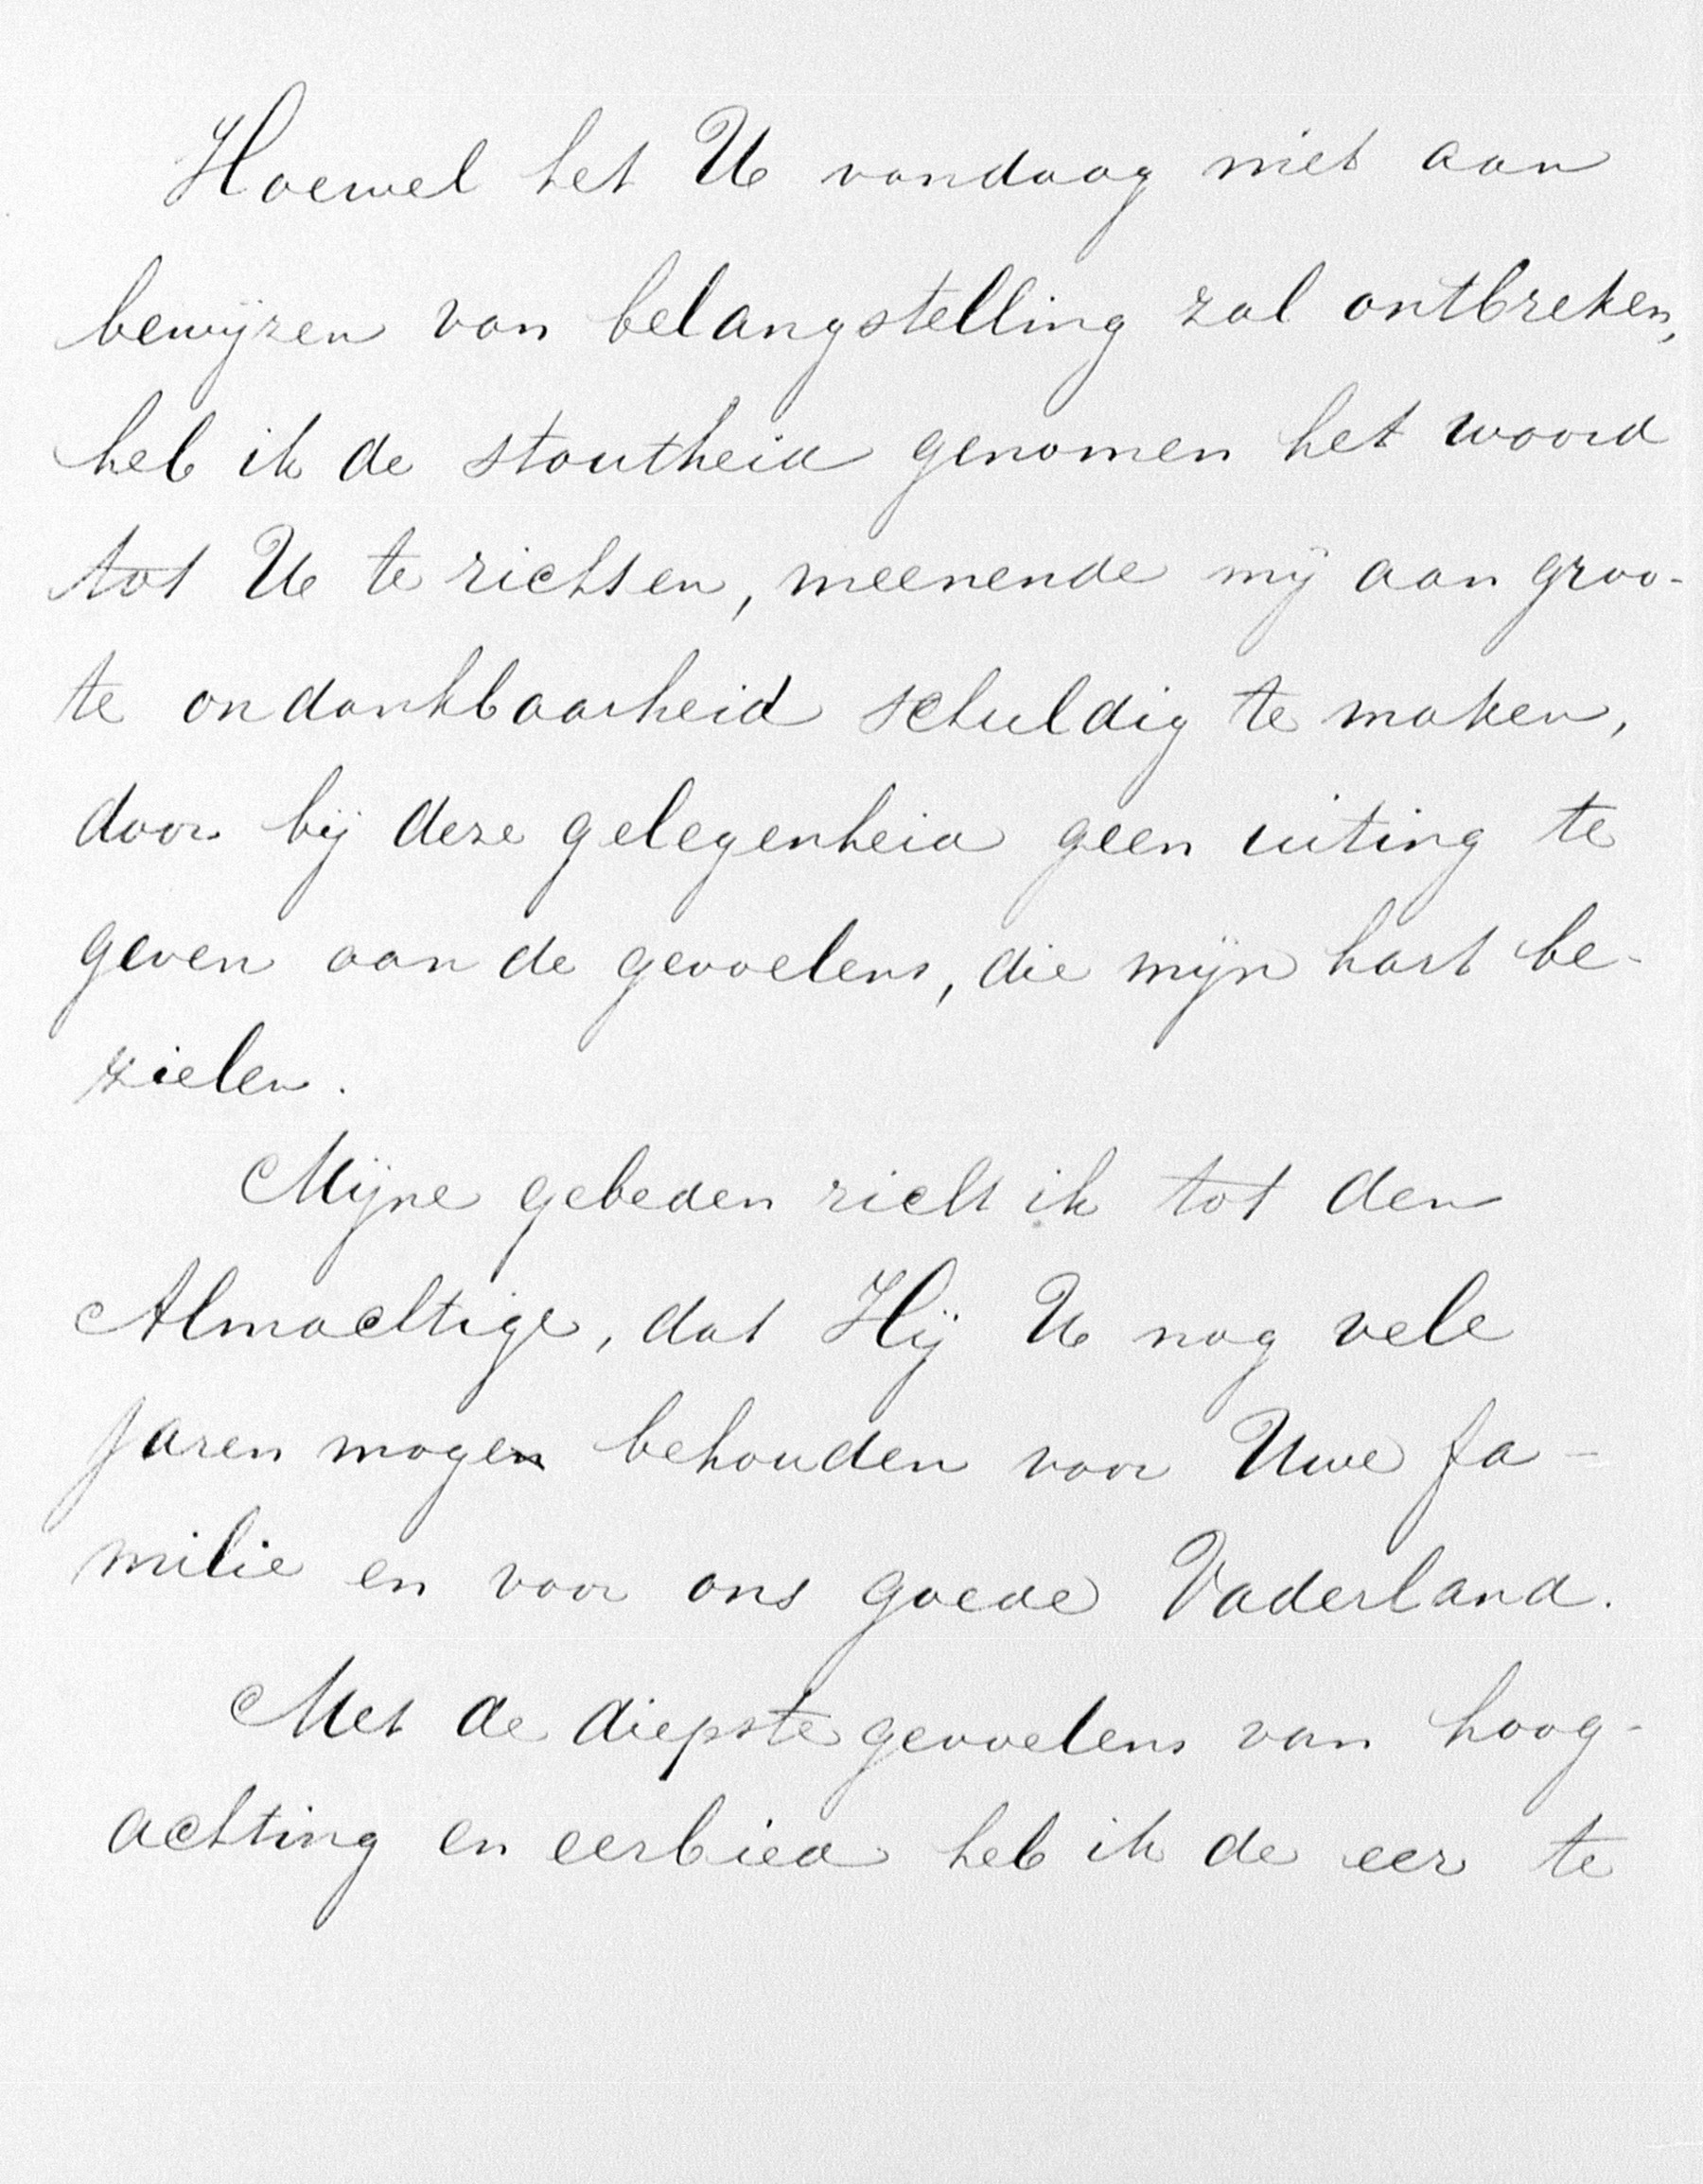 Hoewel het U vandaag niet aan
bewijzen van belangstelling zal ontbreken,
heb ik de stoutheid genomen het woord
tot U te richten, meenende mij aan groo-
te ondankbaarheid schuldig te maken,
door bij deze gelegenheid geen uiting te
geven aan de gevoelens, die mijn hart be-
zielen.
Mijne gebeden richt ik tot den
Almachtige, dat Hij U nog vele
jaren mogen behouden voor Uwe fa-
milie en voor ons goede Vaderland.
Met de diepste gevoelens van hoog-
achting en eerbied heb ik de eer te